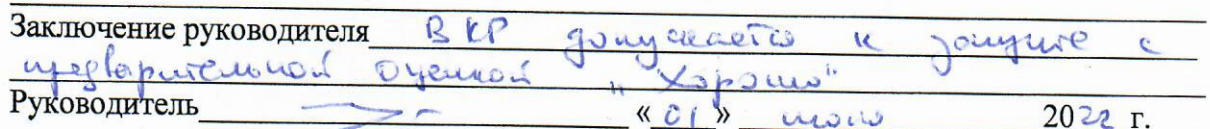 Заключение руководителя ВКР допускается к защите с
предварительной оценкой "Хорошо"
Руководитель «01» июля 2022 г.